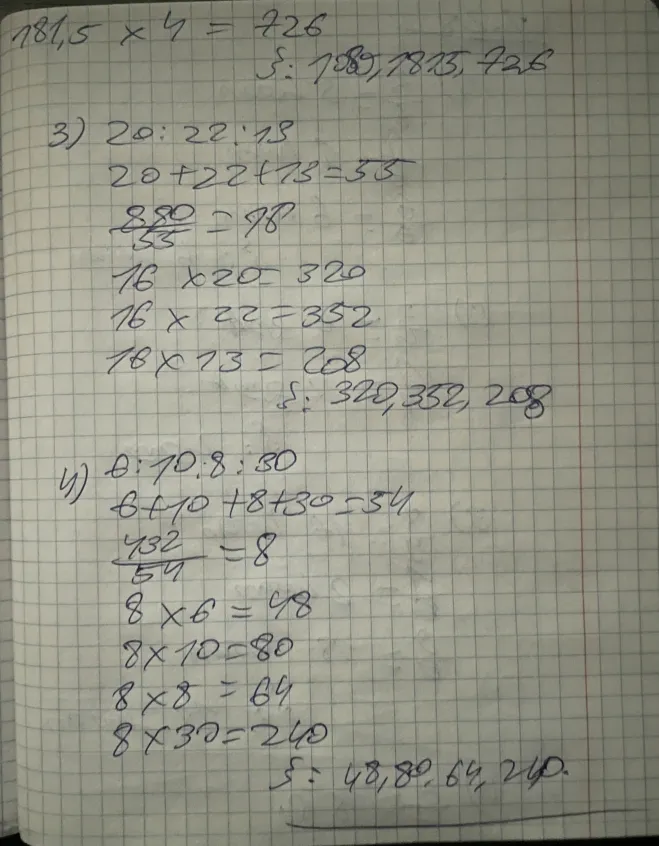 181,5 x 4 = 726
}: 1089, 1815, 726
3) 20 : 22 : 13
20 + 22 + 13 = 55
880/55 = 16
16 x 20 = 320
16 x 22 = 352
16 x 13 = 208
}: 320, 352, 208
4) 6 : 10 : 8 : 30
6 + 10 + 8 + 30 = 54
432/54 = 8
8 x 6 = 48
8 x 10 = 80
8 x 8 = 64
8 x 30 = 240
}: 48, 80, 64, 240.